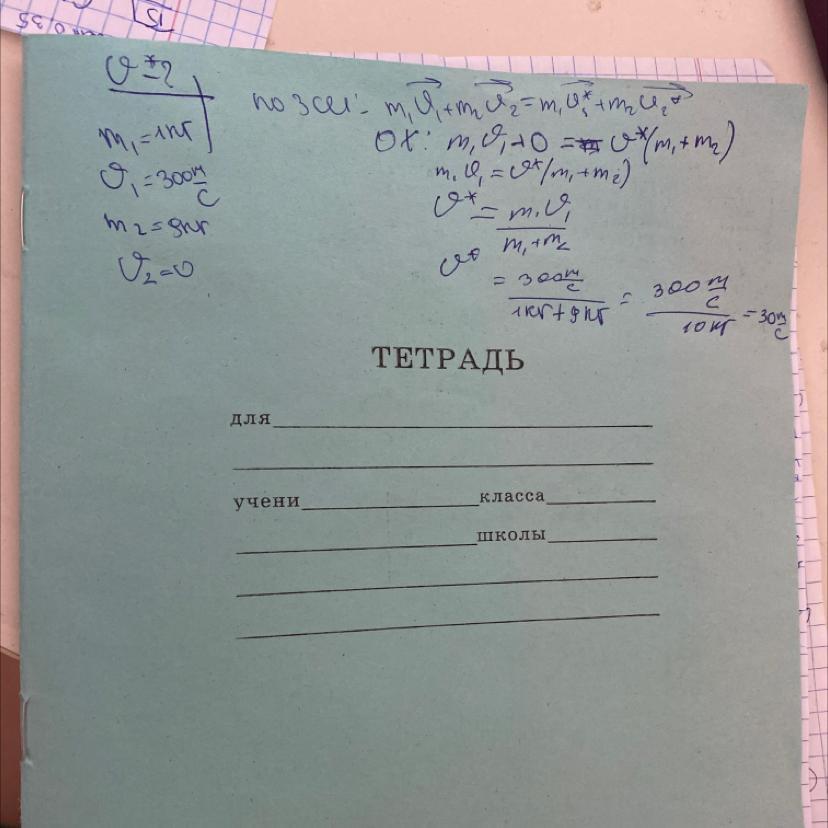 υ* - ?
m₁ = 1кг
υ₁ = 300 м/с
m₂ = 9кг
υ₂ = 0
по ЗСИ: m₁υ₁ + m₂υ₂ = m₁υ₁* + m₂υ₂*
OX: m₁υ₁ + 0 = υ*(m₁ + m₂)
m₁υ₁ = υ*(m₁ + m₂)
υ* = m₁υ₁ / m₁ + m₂
υ* = 300 м/с / 1кг + 9кг = 300 м/с / 10кг = 30 м/с
ТЕТРАДЬ
для
учени класса
школы